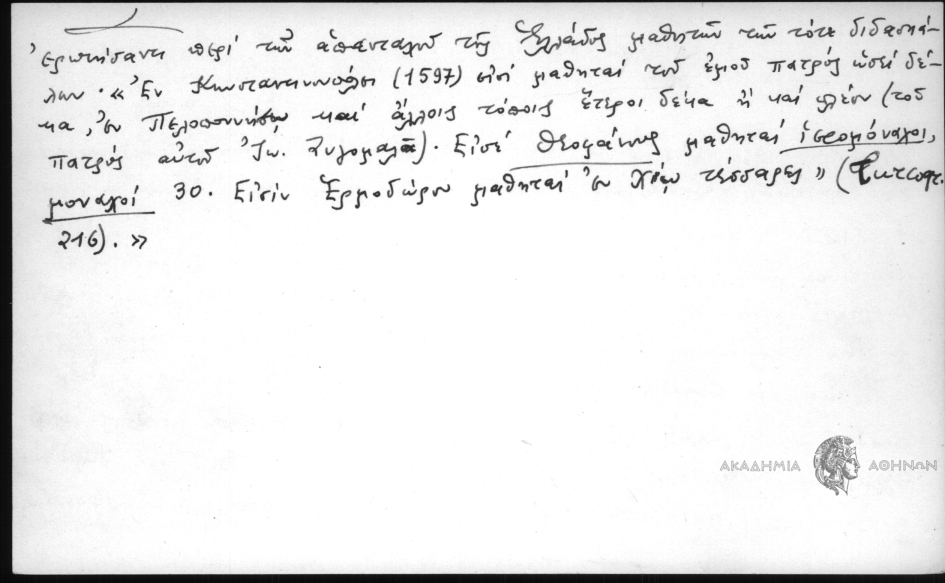 ἐρωτήσαντι περὶ τῶν ἁπανταχοῦ τῆς Ἑλλάδος μαθητῶν τῶν τότε διδασκά-
λων · «Ἐν Κωνσταντινουπόλει (1597) εἰσὶ μαθηταὶ τοῦ ἐμοῦ πατρὸς ὡσεὶ δέ-
κα, ἐν Πελοποννήσῳ καὶ ἄλλοις τόποις ἕτεροι δέκα ἢ καὶ πλέον (τοῦ
πατρὸς αὐτοῦ Ἰω. Ζυγομαλᾶ). Εἰσὶ Θεοφάνους μαθηταὶ ἱερομόναχοι,
μοναχοί 30. Εἰσὶν Ἑρμοδώρου μαθηταὶ ἐν Χίῳ τέσσαρες» (
216). »
ΑΚΑΔΗΜΙΑ ΑΘΗΝΩΝ